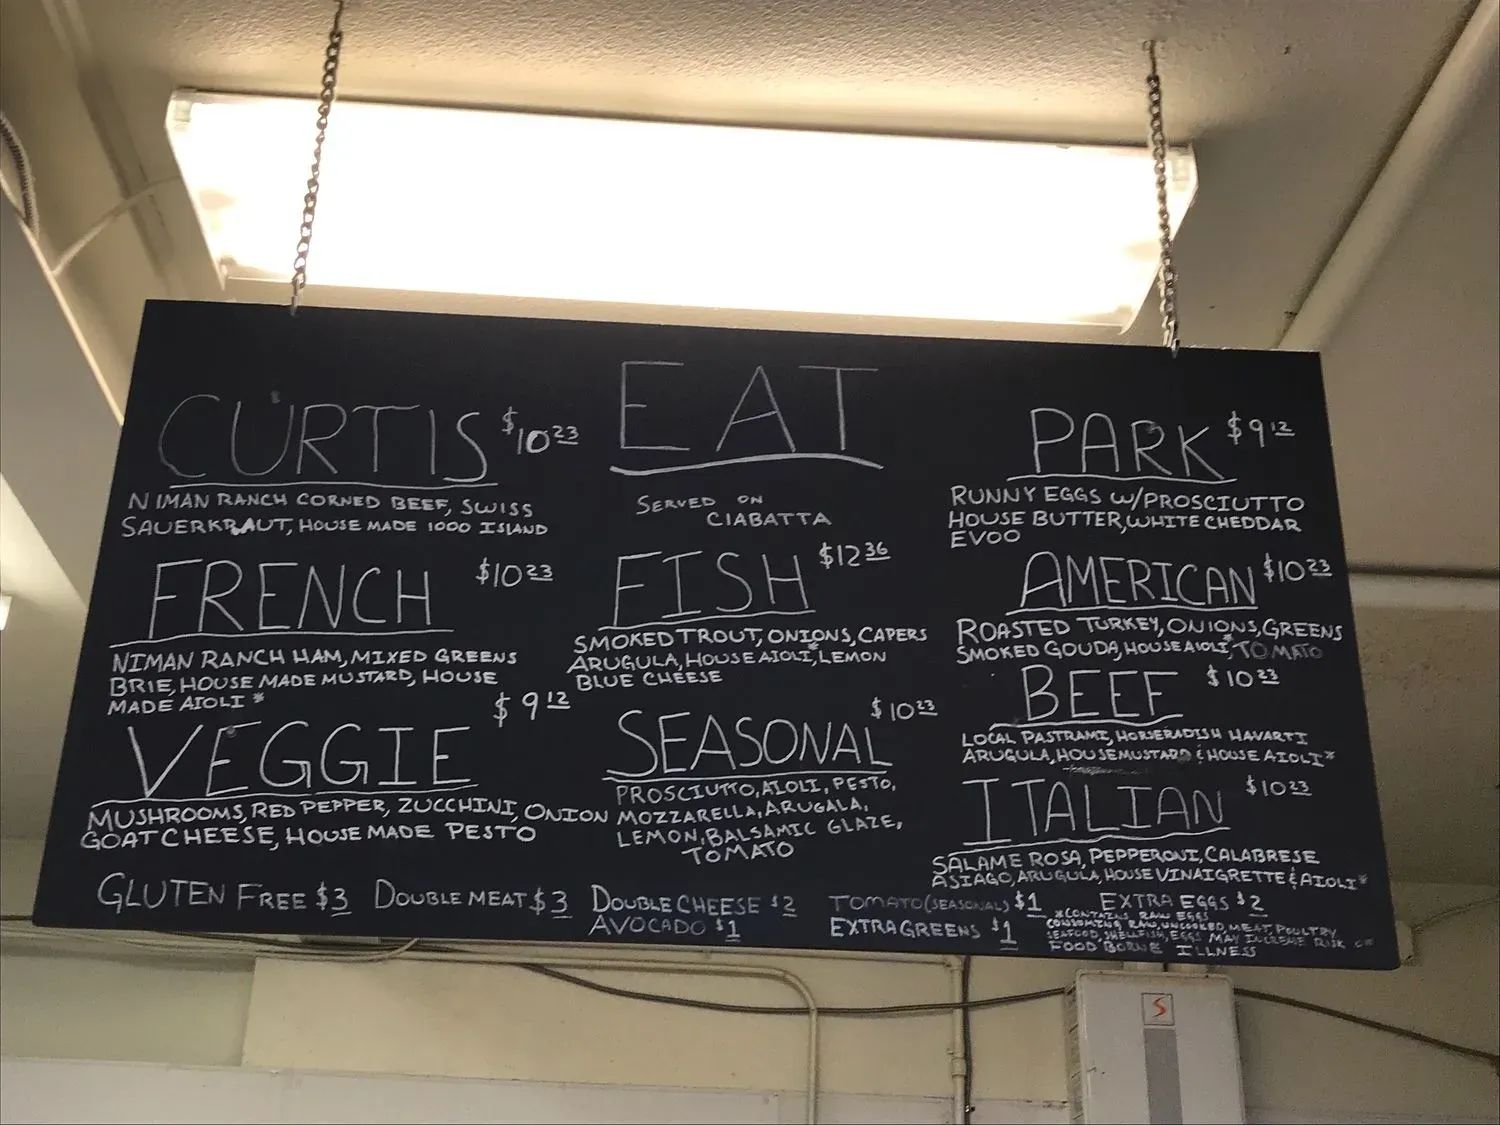 EAT
SERVED ON
CIABATTA
CURTIS $10 23
NIMAN RANCH CORNED BEEF, SWISS
SAUERKRAUT, HOUSE MADE 1000 ISLAND
FRENCH $10 23
NIMAN RANCH HAM, MIXED GREENS
BRIE, HOUSE MADE MUSTARD, HOUSE
MADE AIOLI *
VEGGIE $9 12
MUSHROOMS, RED PEPPER, ZUCCHINI, ONION
GOAT CHEESE, HOUSE MADE PESTO
FISH $12 36
SMOKED TROUT, ONIONS, CAPERS
ARUGULA, HOUSE AIOLI*, LEMON
BLUE CHEESE
SEASONAL $10 23
PROSCIUTTO, AIOLI, PESTO,
MOZZARELLA, ARUGALA,
LEMON, BALSAMIC GLAZE,
TOMATO
PARK $9 12
RUNNY EGGS W/PROSCIUTTO
HOUSE BUTTER, WHITE CHEDDAR
EVOO
AMERICAN $10 23
ROASTED TURKEY, ONIONS, GREENS
SMOKED GOUDA, HOUSE AIOLI*, TOMATO
BEEF $10 23
LOCAL PASTRAMI, HORSERADISH HAVARTI
ARUGULA, HOUSE MUSTARD & HOUSE AIOLI*
ITALIAN $10 23
SALAME ROSA, PEPPERONI, CALABRESE
ASIAGO, ARUGULA, HOUSE VINAIGRETTE & AIOLI*
GLUTEN FREE $3 DOUBLE MEAT $3 DOUBLE CHEESE $2 TOMATO (SEASONAL) $1 EXTRA EGGS $2
AVOCADO $1 EXTRA GREENS $1
*CONTAINS RAW EGGS
CONSUMING RAW, UNCOOKED, MEAT, POULTRY
SEAFOOD, SHELLFISH, EGGS MAY INCREASE RISK OF
FOOD BORNE ILLNESS
S